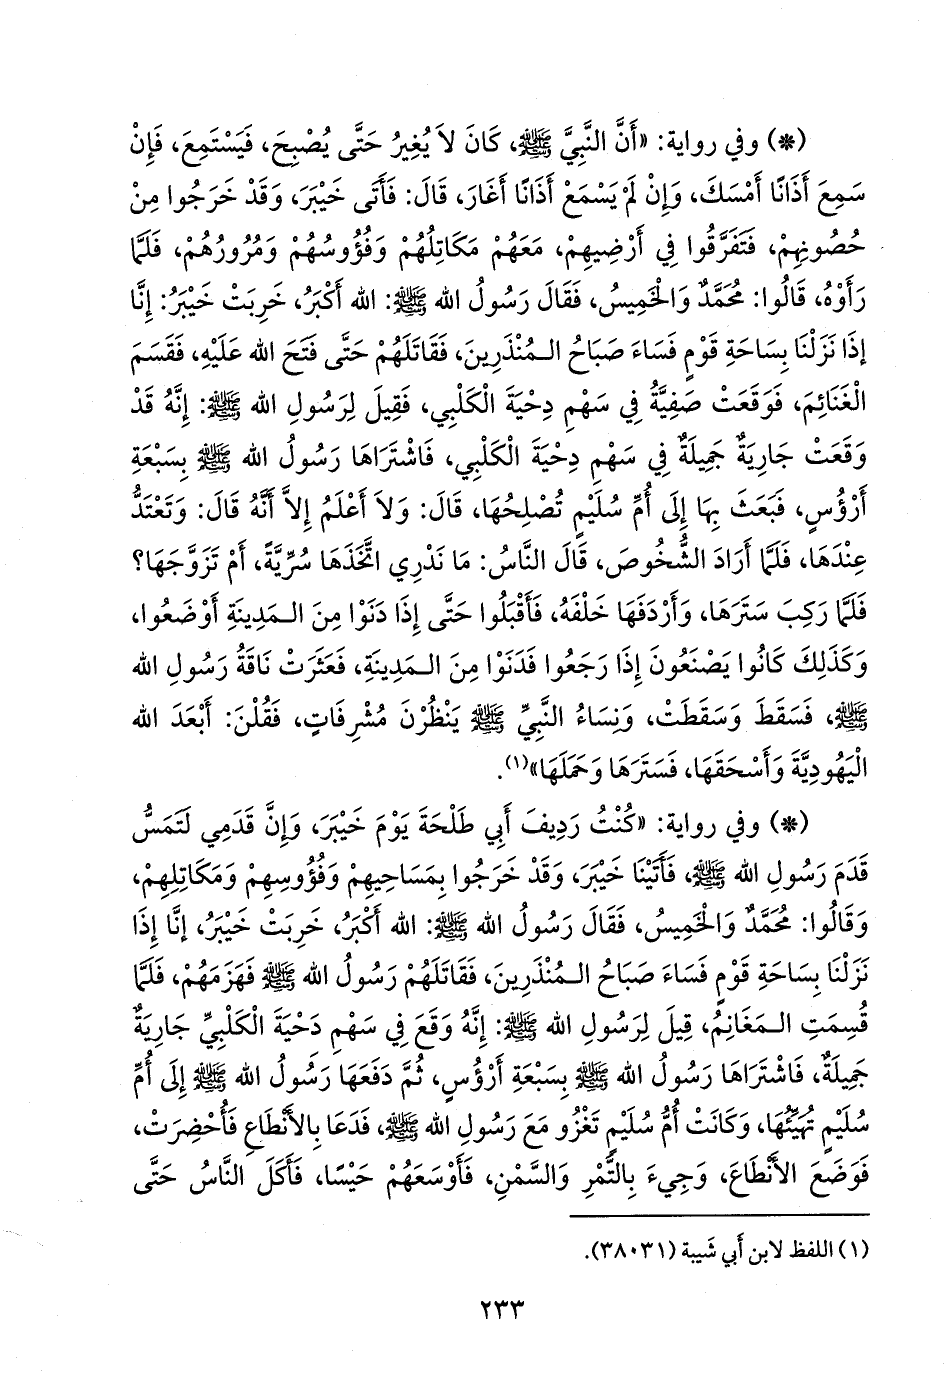 (*) وفي رواية: «أَنَّ النَّبِيَّ ﷺ، كَانَ لاَ يُغِيرُ حَتَّى يُصْبِحَ، فَيَسْتَمِعَ، فَإِنْ
سَمِعَ أَذَانًا أَمْسَكَ، وَإِنْ لَمْ يَسْمَعْ أَذَانًا أَغَارَ، قَالَ: فَأَتَى خَيْبَرَ، وَقَدْ خَرَجُوا مِنْ
حُصُونِهِمْ، فَتَفَرَّقُوا فِي أَرْضِيهِمْ، مَعَهُمْ مَكَاتِلُهُمْ وَفُؤُوسُهُمْ وَمُرُورُهُمْ، فَلَمَّا
رَأَوْهُ، قَالُوا: مُحَمَّدٌ وَالْخَمِيسُ، فَقَالَ رَسُولُ الله ﷺ: الله أَكْبَرُ، خَرِبَتْ خَيْبَرُ: إِنَّا
إِذَا نَزَلْنَا بِسَاحَةِ قَوْمٍ فَسَاءَ صَبَاحُ الـمُنْذَرِينَ، فَقَاتَلَهُمْ حَتَّى فَتَحَ الله عَلَيْهِ، فَقَسَمَ
الْغَنَائِمَ، فَوَقَعَتْ صَفِيَّةُ فِي سَهْمِ دِحْيَةَ الْكَلْبِي، فَقِيلَ لِرَسُولِ الله ﷺ: إِنَّهُ قَدْ
وَقَعَتْ جَارِيَةٌ جَمِيلَةٌ فِي سَهْمِ دِحْيَةَ الْكَلْبِي، فَاشْتَرَاهَا رَسُولُ الله ﷺ بِسَبْعَةِ
أَرْؤُسٍ، فَبَعَثَ بِهَا إِلَى أُمِّ سُلَيْمٍ تُصْلِحُهَا، قَالَ: وَلاَ أَعْلَمُ إِلاَّ أَنَّهُ قَالَ: وَتَعْتَدُّ
عِنْدَهَا، فَلَمَّا أَرَادَ الشُّخُوصَ، قَالَ النَّاسُ: مَا نَدْرِي اتَّخَذَهَا سُرِّيَّةً، أَمْ تَزَوَّجَهَا؟
فَلَمَّا رَكِبَ سَتَرَهَا، وَأَرْدَفَهَا خَلْفَهُ، فَأَقْبَلُوا حَتَّى إِذَا دَنَوْا مِنَ الـمَدِينَةِ أَوْضَعُوا،
وَكَذَلِكَ كَانُوا يَصْنَعُونَ إِذَا رَجَعُوا فَدَنَوْا مِنَ الـمَدِينَةِ، فَعَثَرَتْ نَاقَةُ رَسُولِ الله
ﷺ، فَسَقَطَ وَسَقَطَتْ، وَنِسَاءُ النَّبِيِّ ﷺ يَنْظُرْنَ مُشْرِفَاتٍ، فَقُلْنَ: أَبْعَدَ الله
الْيَهُودِيَّةَ وَأَسْحَقَهَا، فَسَتَرَهَا وَحَمَلَهَا»(١).
(*) وفي رواية: «كُنْتُ رَدِيفَ أَبِي طَلْحَةَ يَوْمَ خَيْبَرَ، وَإِنَّ قَدَمِي لَتَمَسُّ
قَدَمَ رَسُولِ الله ﷺ، فَأَتَيْنَا خَيْبَرَ، وَقَدْ خَرَجُوا بِمَسَاحِيهِمْ وَفُؤُوسِهِمْ وَمَكَاتِلِهِمْ،
وَقَالُوا: مُحَمَّدٌ وَالْخَمِيسُ، فَقَالَ رَسُولُ الله ﷺ: الله أَكْبَرُ، خَرِبَتْ خَيْبَرُ، إِنَّا إِذَا
نَزَلْنَا بِسَاحَةِ قَوْمٍ فَسَاءَ صَبَاحُ الـمُنْذَرِينَ، فَقَاتَلَهُمْ رَسُولُ الله ﷺ فَهَزَمَهُمْ، فَلَمَّا
قُسِمَتِ الـمَغَانِمُ، قِيلَ لِرَسُولِ الله ﷺ: إِنَّهُ وَقَعَ فِي سَهْمِ دَحْيَةَ الْكَلْبِيِّ جَارِيَةٌ
جَمِيلَةٌ، فَاشْتَرَاهَا رَسُولُ الله ﷺ بِسَبْعَةِ أَرْؤُسٍ، ثُمَّ دَفَعَهَا رَسُولُ الله ﷺ إِلَى أُمِّ
سُلَيْمٍ تُهَيِّئُهَا، وَكَانَتْ أُمُّ سُلَيْمٍ تَغْزُو مَعَ رَسُولِ الله ﷺ، فَدَعَا بِالأَنْطَاعِ فَأُحْضِرَتْ،
فَوَضَعَ الأَنْطَاعَ، وَجِيءَ بِالتَّمْرِ وَالسَّمْنِ، فَأَوْسَعَهُمْ حَيْسًا، فَأَكَلَ النَّاسُ حَتَّى
(١) اللفظ لابن أبي شَيبة (٣٨٠٣١).
٢٣٣